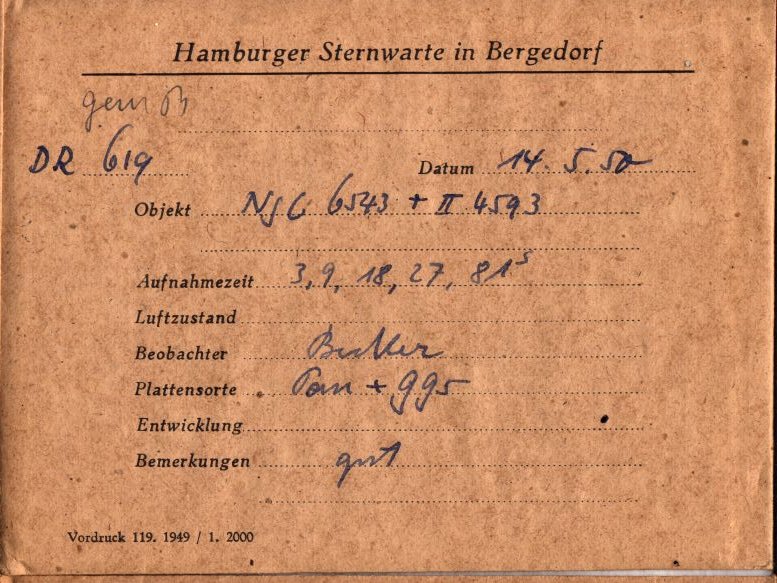 Hamburger Sternwarte in Bergedorf
DR 619
Datum 14. 5. 50
Objekt NGC 6543 + II 4593
Aufnahmezeit 3, 9, 18, 27, 81ˢ
Luftzustand
Beobachter
Plattensorte Pan + 995
Entwicklung
Bemerkungen gut
Vordruck 119. 1949 / 1. 2000